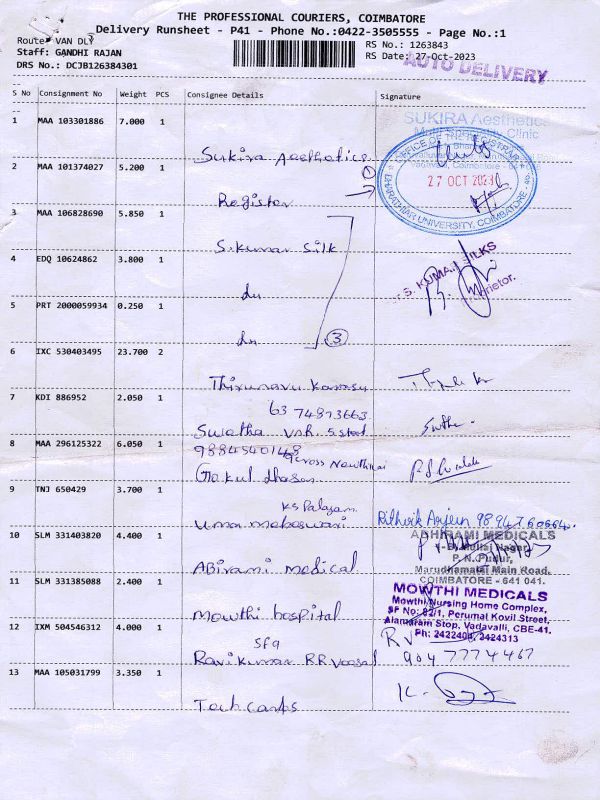 THE PROFESSIONAL COURIERS, COIMBATORE
Delivery Runsheet - P41 - Phone No.:0422-3505555 - Page No.:1
Route: VAN DLY
RS No.: 1263843
Staff: GANDHI RAJAN
RS Date: 27-Oct-2023
DRS No.: DCJB126384301
AUTO DELIVERY
S No Consignment No Weight PCS Consignee Details Signature
1 MAA 103301886 7.000 1
SUKIRA Aesthetics
Multi Speciality Clinic
OFFICE OF THE REGISTRAR
Sukira Aesthetics
①
27 OCT 2023
BHARATHIAR UNIVERSITY, COIMBATORE
2 MAA 101374027 5.200 1
Register
3 MAA 106828690 5.850 1
S.kumar Silk
S. KUMAR SILKS
Proprietor.
4 EDQ 10624862 3.800 1
du
5 PRT 2000059934 0.250 1
du
③
6 IXC 530403495 23.700 2
Thirunavu Karasu
63 74873663
7 KDI 886952 2.050 1
Swatha VNR. S street
9884540148
8 MAA 296125322 6.050 1
Gokul dhasan
9 TNJ 650429 3.700 1
KS Palayam
Uma maheswari
Rithvik Arjun 98 94 760664.
10 SLM 331403820 4.400 1
ABHIRAMI MEDICALS
P.N. Pudur,
Marudhamalai Main Road,
COIMBATORE - 641 041.
Abirami medical
11 SLM 331385088 2.400 1
MOWTHI MEDICALS
Mowthi Nursing Home Complex,
SF No: 82/1, Perumal Kovil Street,
Alamaram Stop, Vadavalli, CBE-41.
Ph: 2422404, 2424313
mowthi hospital
12 IXM 504546312 4.000 1
RV
904 7774467
Ravikumar RR
13 MAA 105031799 3.350 1
Tech Camps